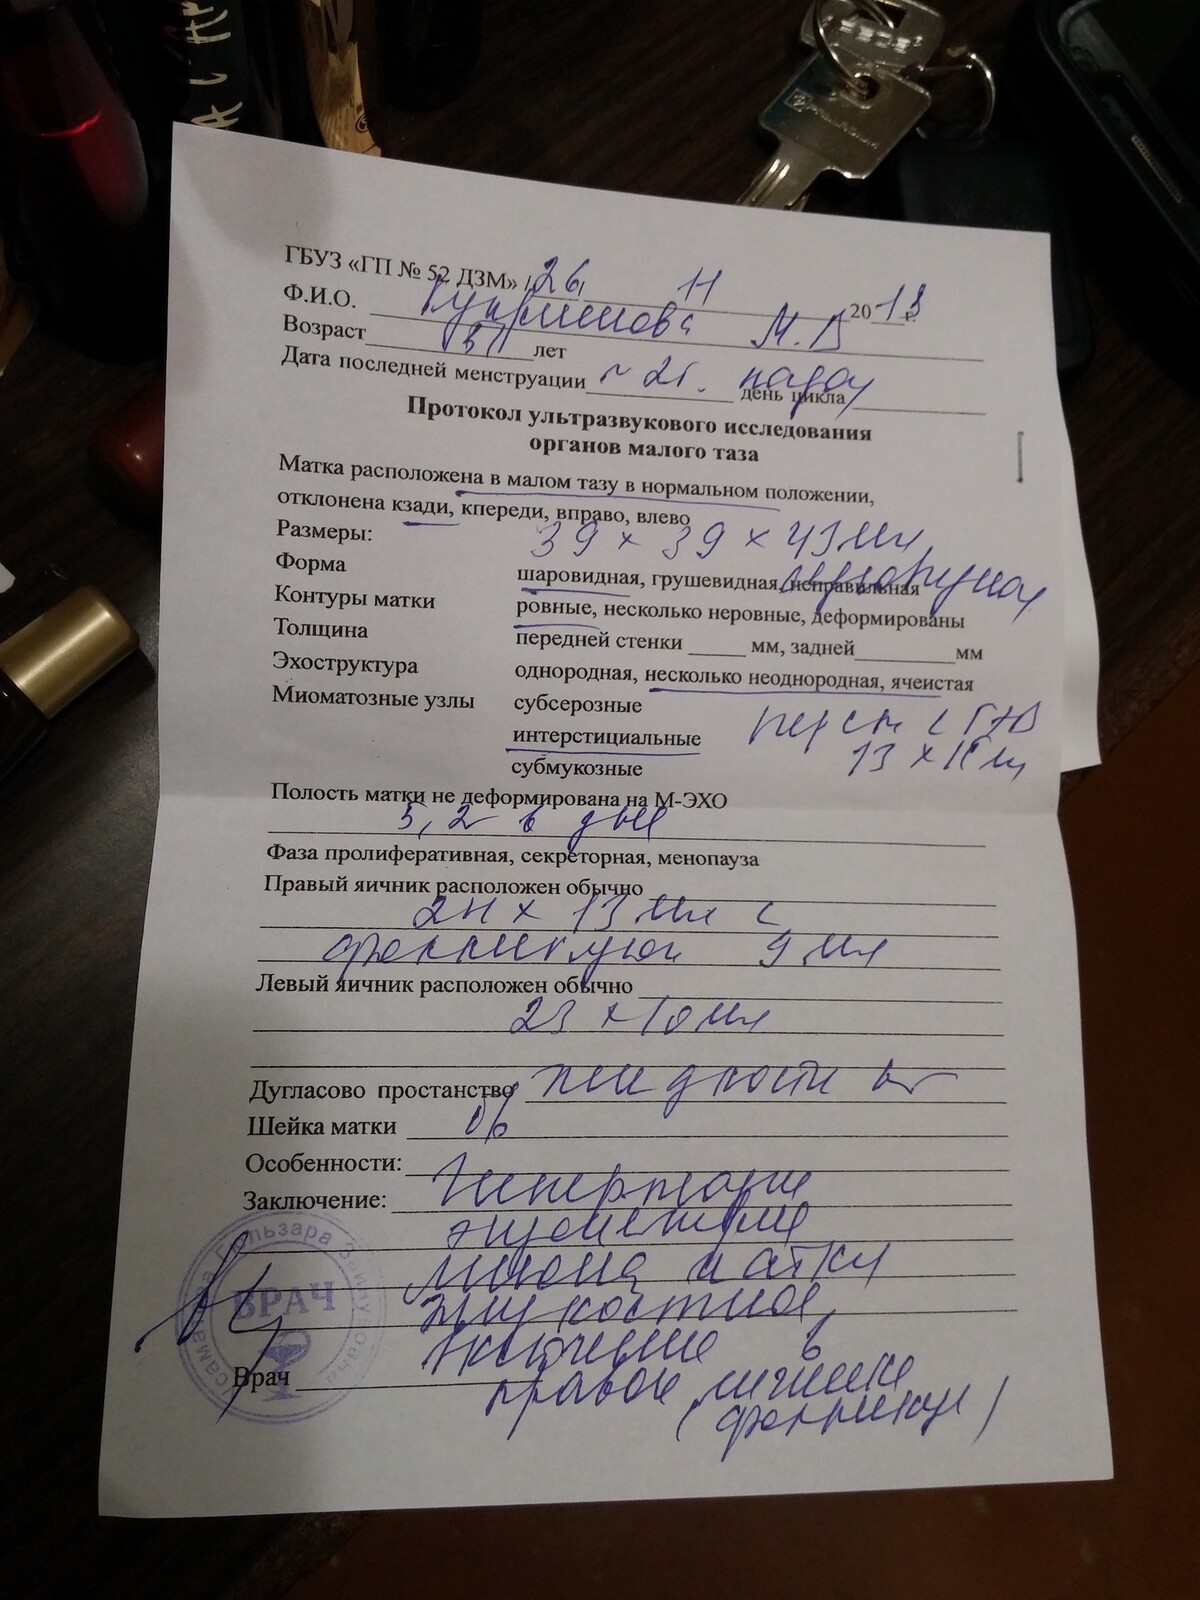 ГБУЗ «ГП № 52 ДЗМ» 26 11 2013 г.
Ф.И.О. М.В
Возраст лет
Дата последней менструации день цикла
Протокол ультразвукового исследования
органов малого таза
Матка расположена в малом тазу в нормальном положении,
отклонена кзади, кпереди, вправо, влево
Размеры: 39 x 39 x 43 мм,
Форма шаровидная, грушевидная, неправильная
Контуры матки ровные, несколько неровные, деформированы
Толщина передней стенки мм, задней мм
Эхоструктура однородная, несколько неоднородная, ячеистая
Миоматозные узлы субсерозные
интерстициальные
13 x
субмукозные
Полость матки не деформирована на М-ЭХО
5,2 в дне
Фаза пролиферативная, секреторная, менопауза
Правый яичник расположен обычно
x 13 мм с
фолликулом 9 мм
Левый яичник расположен обычно
23 x 10 мм
Дугласово простанство жидкости
Шейка матки б/о
Особенности:
Заключение: Гиперплазия
эндометрия
миома матки
жидкостное
включение в
правом яичнике
(фолликул)
Врач
ВРАЧ